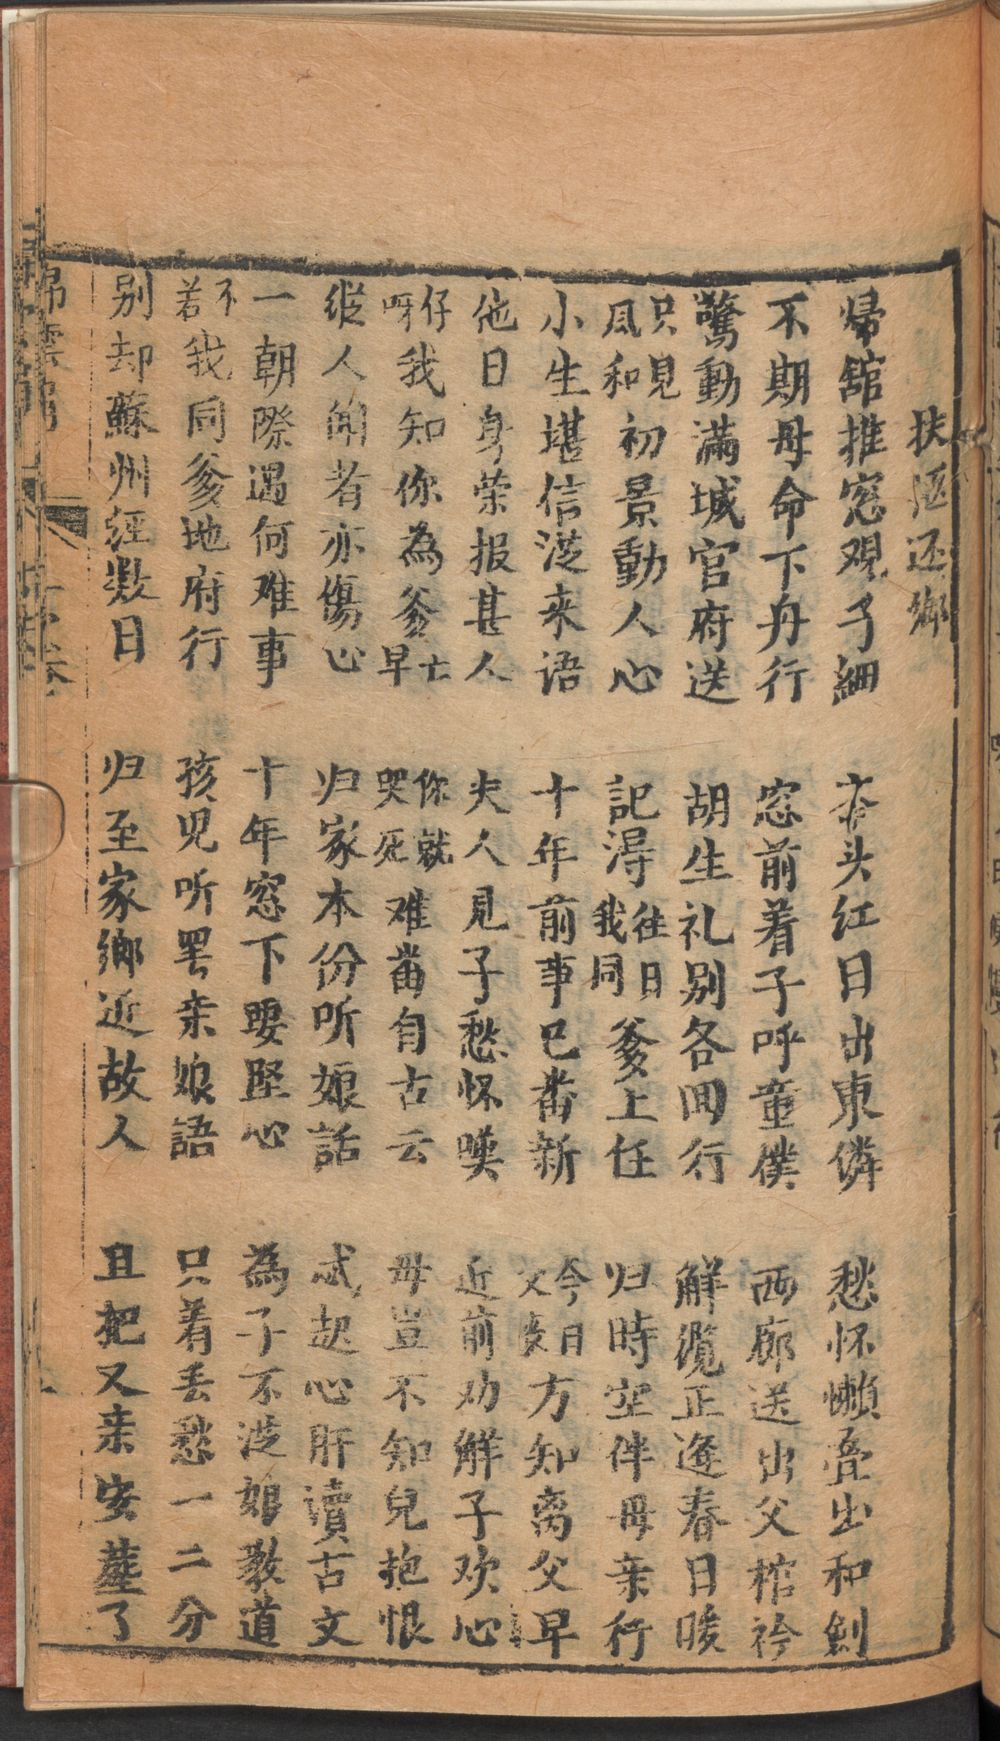 扶柩还鄉
歸舘推窓观子細　夲头红日出東倂　愁怀懶叠出和劍
不期母命下舟行　窓前着子呼童僕　西廊送出父棺衿
驚動滿城官府送　胡生礼别各囬行　解纜正逢春日暖
只見風和初景動人心　記淂往日我同爹上任　归時空伴母亲行
小生堪信送来语　十年前事已畨新　今日父喪方知离父早
他日身荣报甚人　夫人見子愁怀嘆　近前劝解子欢心
仔呀我知你為爹亡早　你就哭死难畨自古云　母豈不知兒抱恨
縱人闻者亦傷心　归家本份听娘話　忒起心肝讀古文
一朝際遇何难事　十年窓下要堅心　為子不送娘教道
不若我同爹地府行　孩児听罢亲娘語　只着丢愁一二分
别却蘇州经数日　归至家鄉近故人　且把又亲安塟了